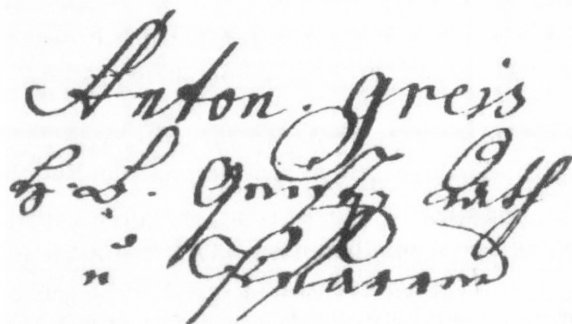 Anton. Greis
H. L. Geistl. Rath
u Pfarrer